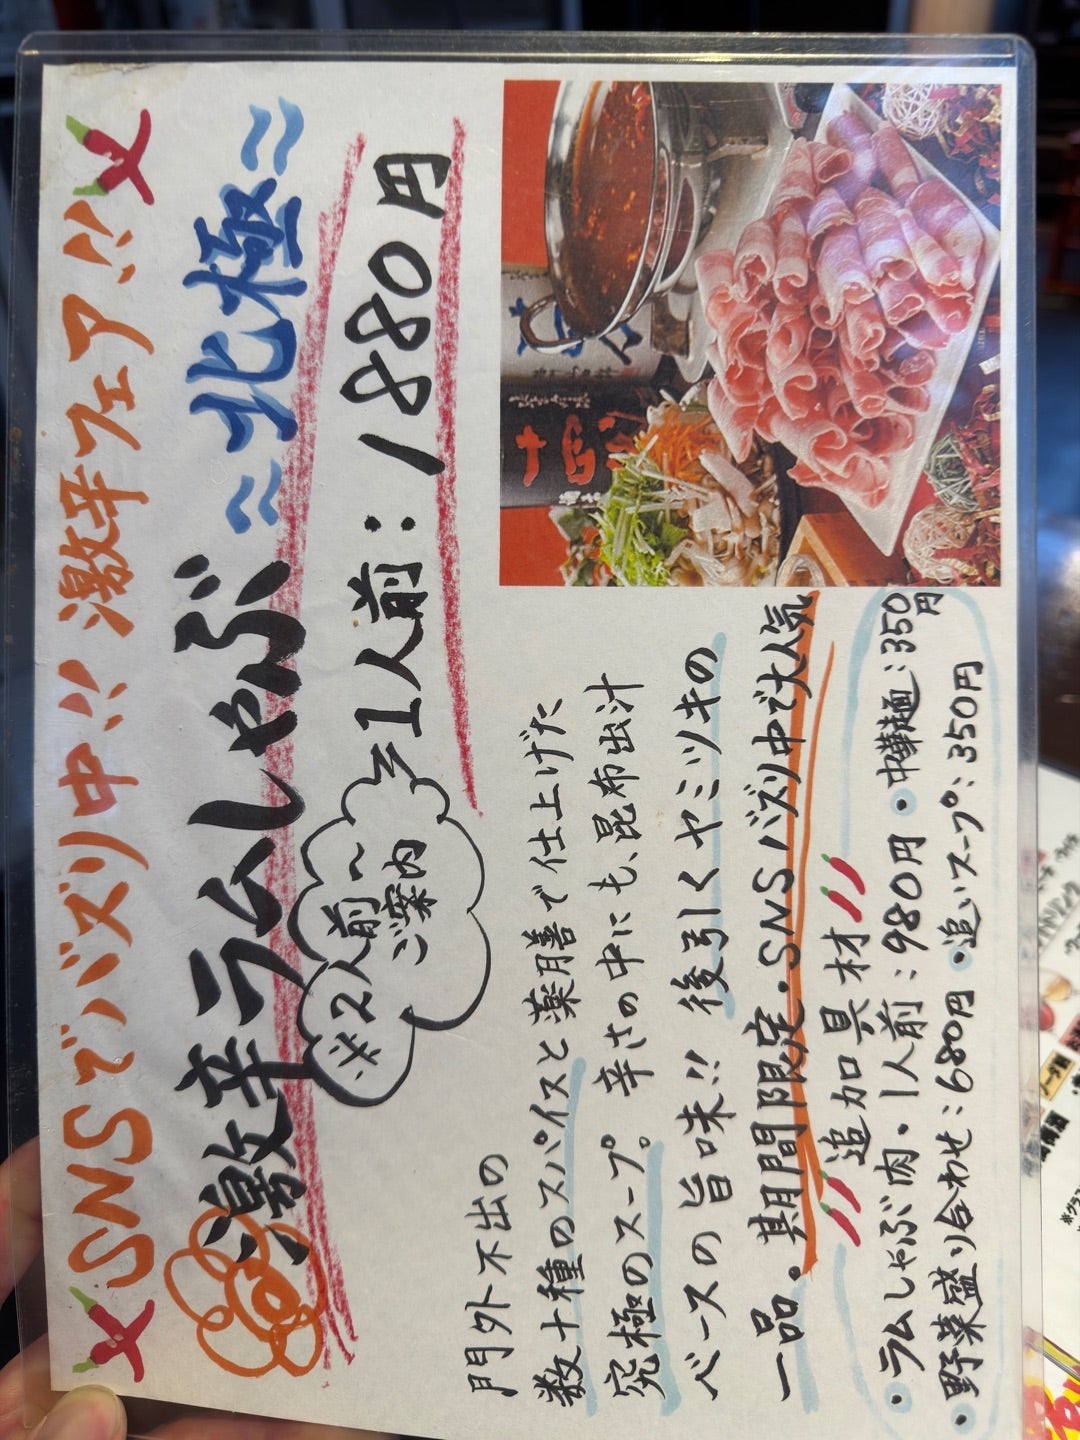 SNSでバズリ中!! 激辛フェア!!
激辛ラムしゃぶ ≈北極≈
※2人前〜
ご案内
1人前：1880円
門外不出の
数十種のスパイスと薬膳で仕上げた
究極のスープ。辛さの中にも、昆布出汁
ベースの旨味!! 後引くヤミツキの
一品。期間限定・SNSバズリ中で大人気
追加具材
・ラムしゃぶ肉・1人前：980円 ・中華麺：350円
・野菜盛り合わせ：680円 ・追いスープ：350円